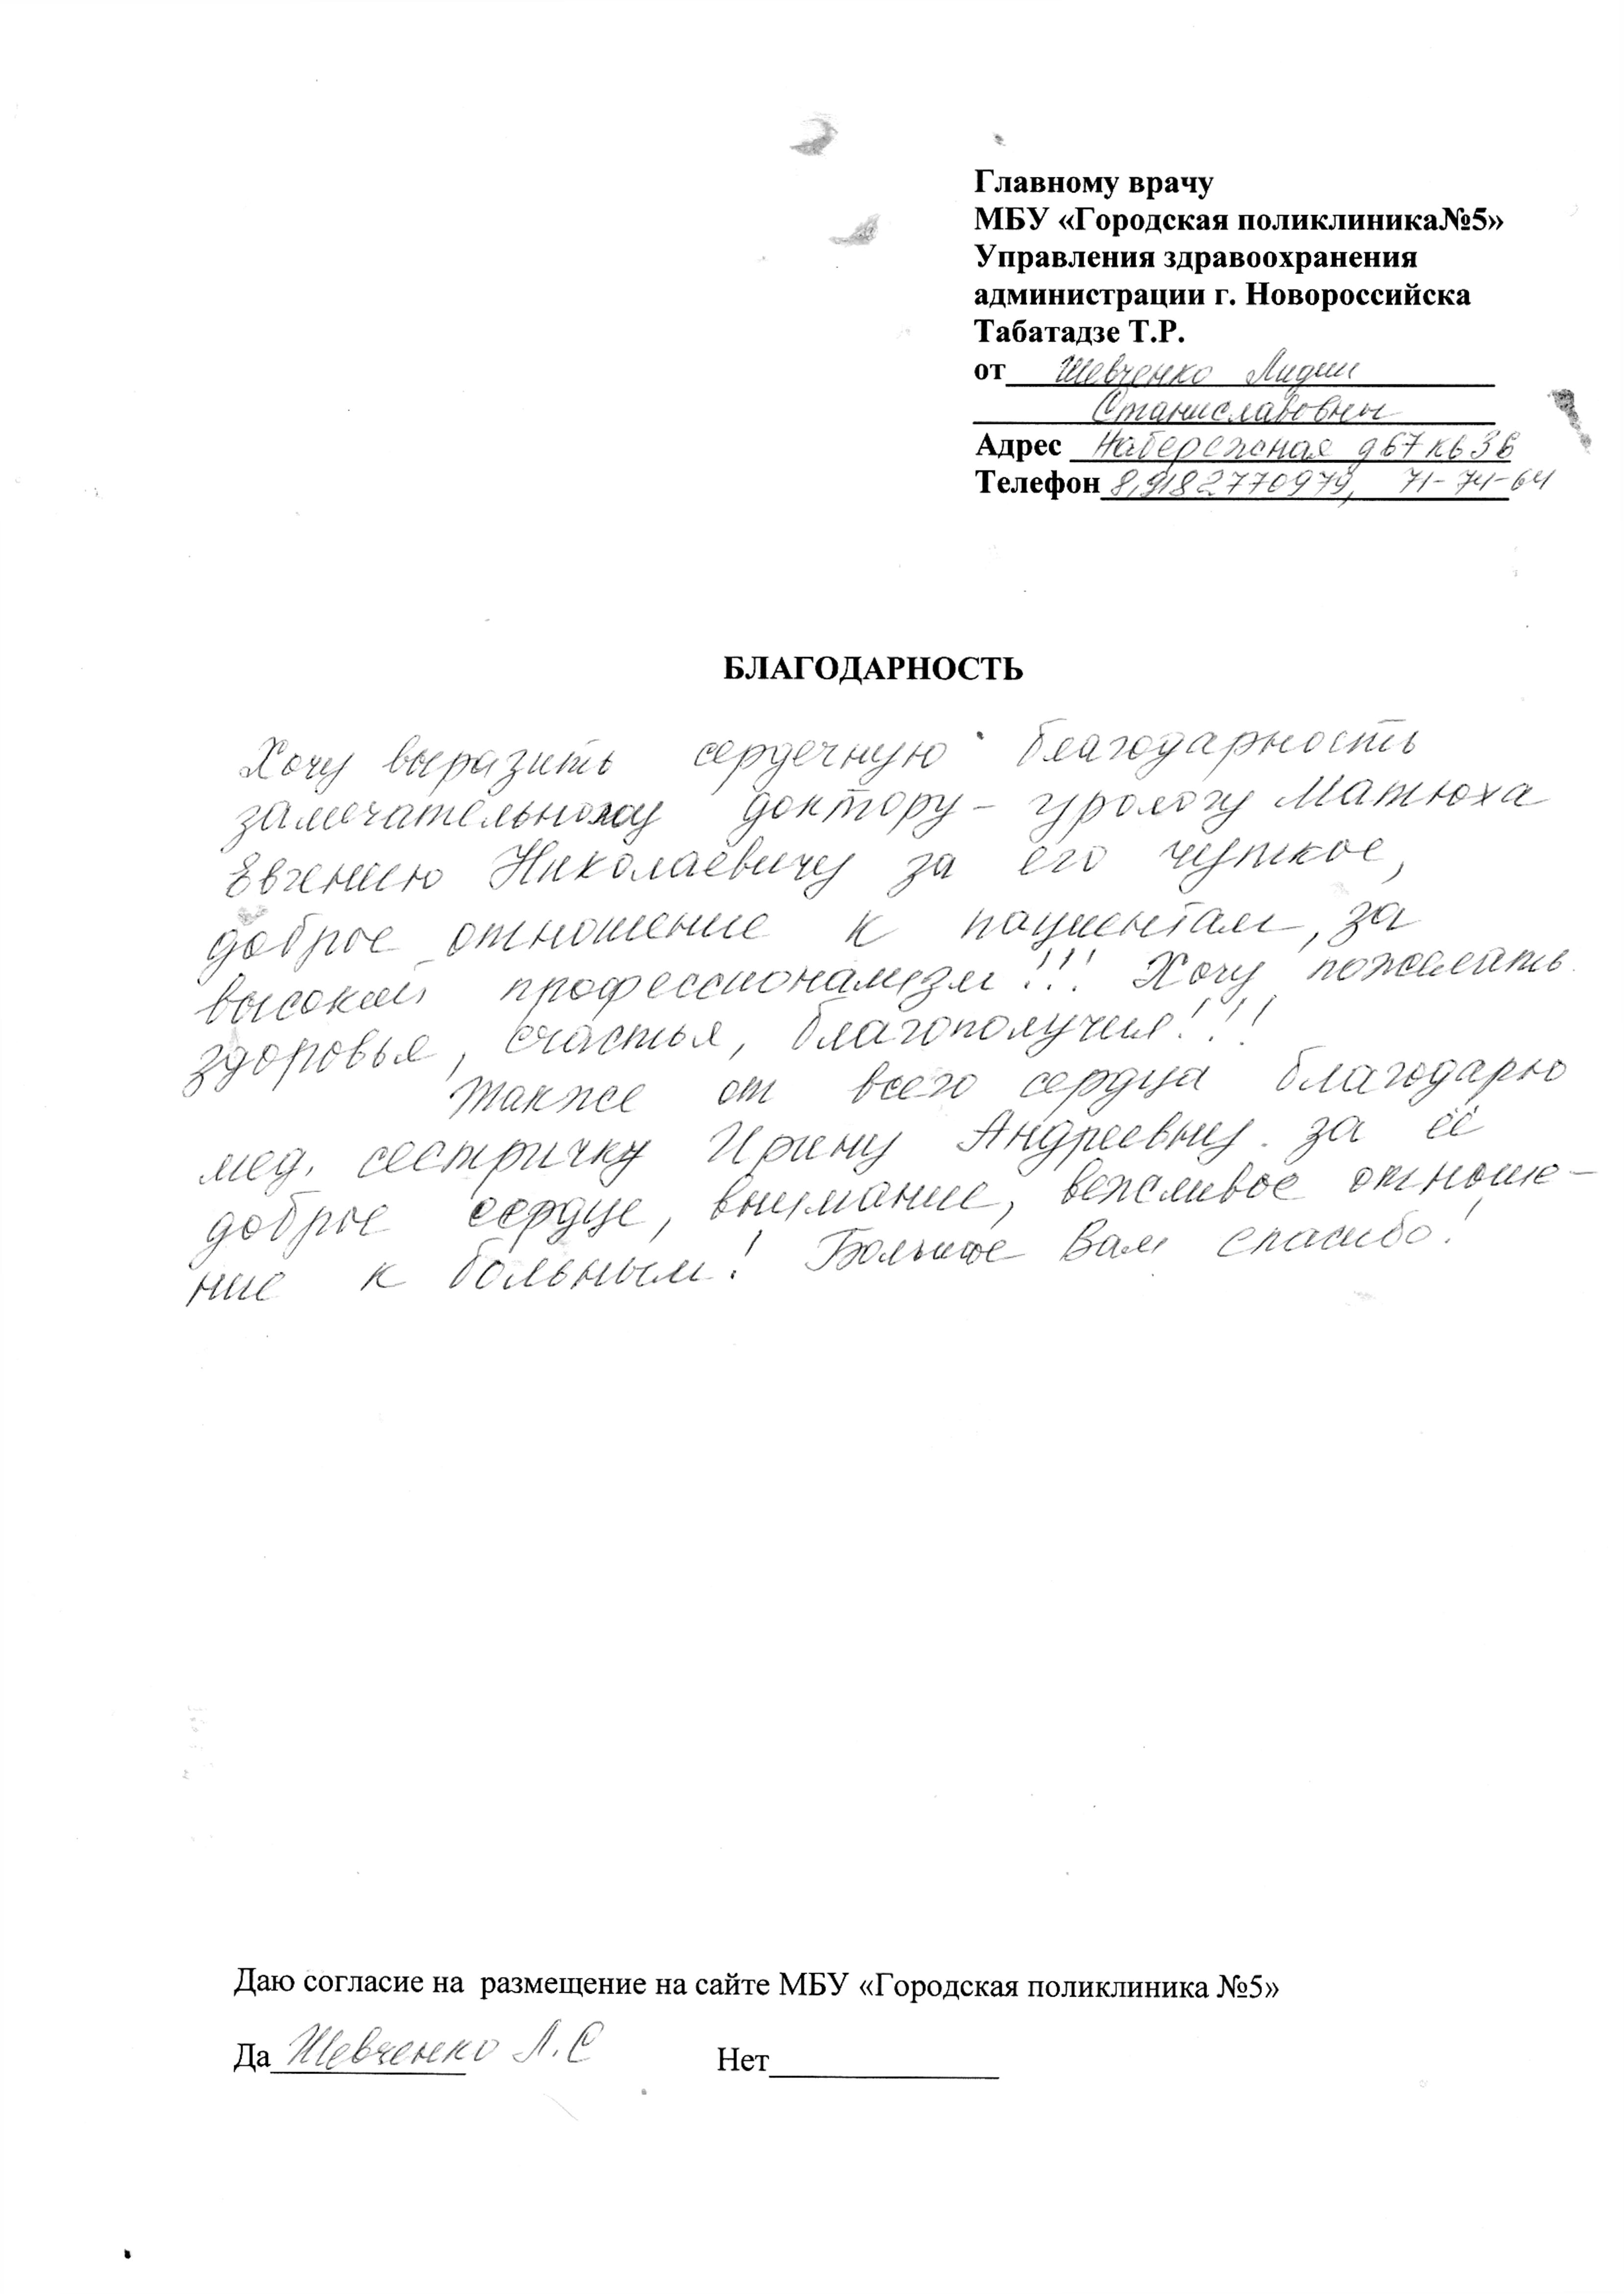 Главному врачу
МБУ «Городская поликлиника№5»
Управления здравоохранения
администрации г. Новороссийска
Табатадзе Т.Р.
от Шевченко Лидии
Станиславовны
Адрес Набережная д67кв36
Телефон 8,9182770979, 71-74-64
БЛАГОДАРНОСТЬ
Хочу выразить сердечную благодарность
замечательному доктору - урологу Матюха
Евгению Николаевичу за его чуткое,
доброе отношение к пациентам, за
высокий профессионализм!!! Хочу пожелать
здоровья, счастья, благополучия!!!
Также от всего сердца благодарю
мед. сестричку Ирину Андреевну за её
доброе сердце, внимание, вежливое отноше-
ние к больным! Большое Вам спасибо!
Даю согласие на размещение на сайте МБУ «Городская поликлиника №5»
Да Шевченко Л.С Нет